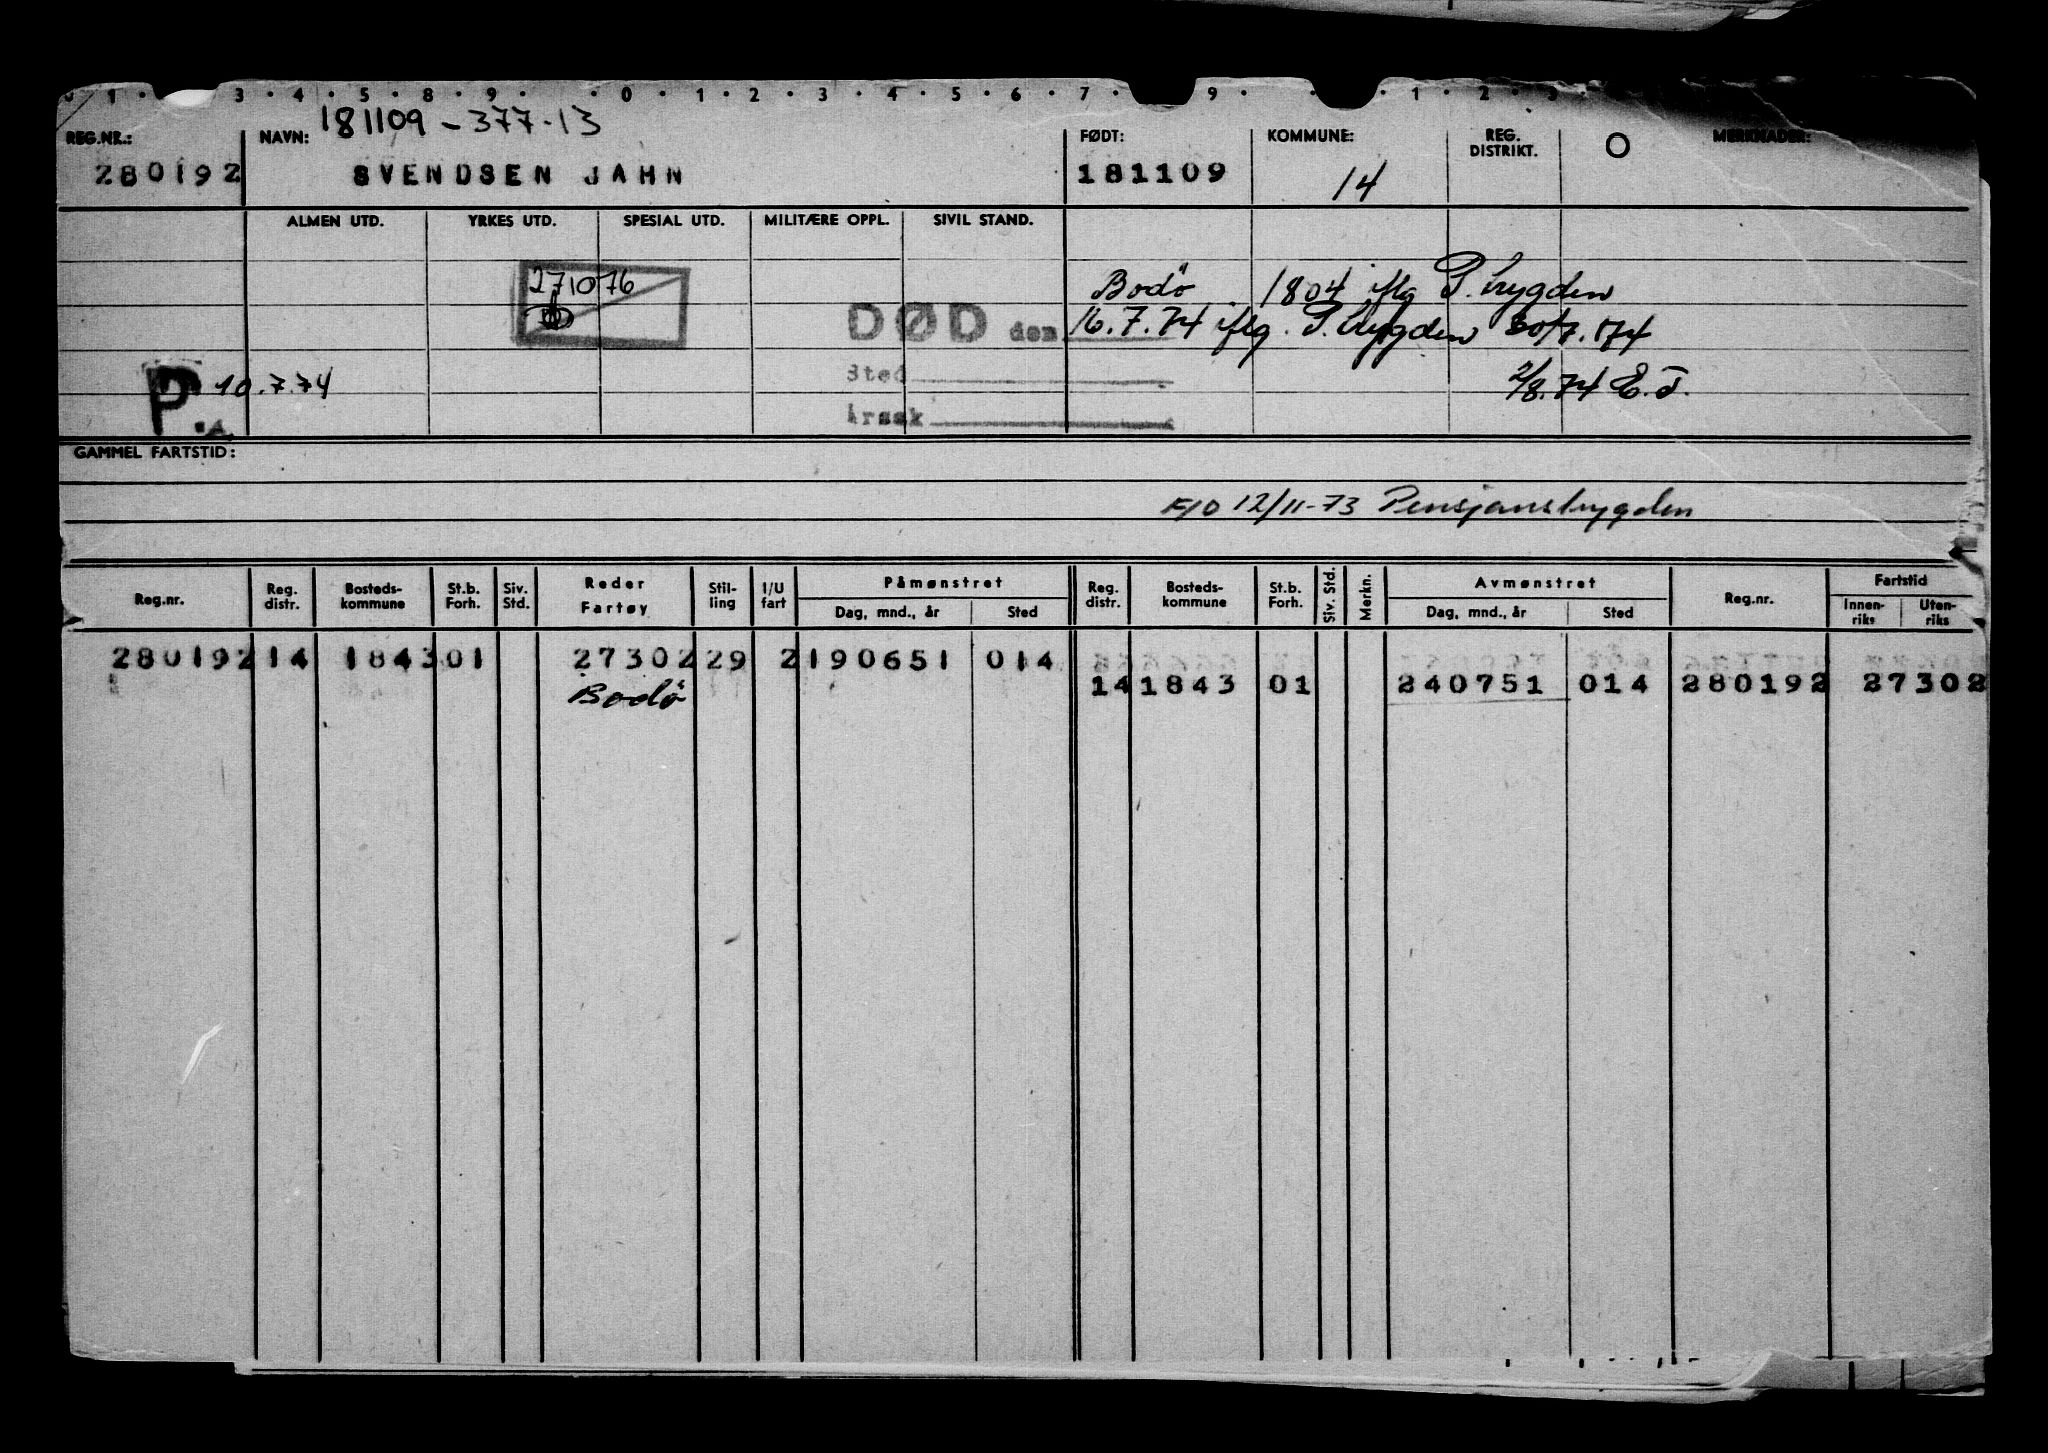 0 1 · 3 · 4 · 5 · 8 · 9 · · 0 · 1 · 2 · 3 · 4 · 5 · 6 · 7 · 9 · · 1 · 2 · 3 ·
181109-377-13
REG.NR.: NAVN: FØDT: KOMMUNE: REG. DISTRIKT. O MERKNADER:
280192 SVENDSEN JAHN 181109 14
ALMEN UTD. YRKES UTD. SPESIAL UTD. MILITÆRE OPPL. SIVIL STAND.
271076 Bodö 1804 iflg P. trygden
DØD den 16.7.74 iflg. P. trygden 30/7.174
P 10.7.74 Sted 2/8.74 E.J.
Årsak
GAMMEL FARTSTID:
F/O 12/11-73 Pensjonstrygden
Reg.nr. Reg. distr. Bosteds-kommune St.b. Forh. Siv. Std. Reder Fartøy Stil-ling I/U fart Påmønstret Dag, mnd., år Sted Reg. distr. Bosteds-kommune St.b. Forh. Siv. Std. Merkn. Avmønstret Dag, mnd., år Sted Reg.nr. Fartstid Innen-riks Uten-riks
280192 14 1843 01 27302 29 2 190651 014
Bodö 14 1843 01 240751 014 280192 27302